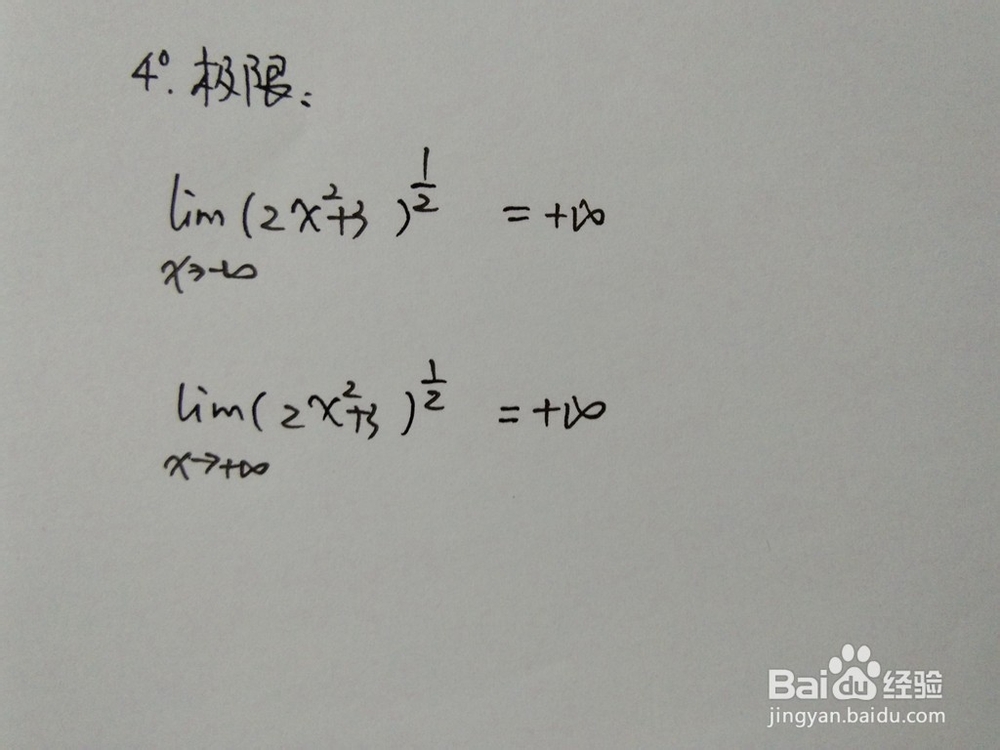 4°. 极限:
lim(2x²+3)^{1/2} = +∞
x→-∞
lim(2x²+3)^{1/2} = +∞
x→+∞
Baidu经验
jingyan.baidu.com